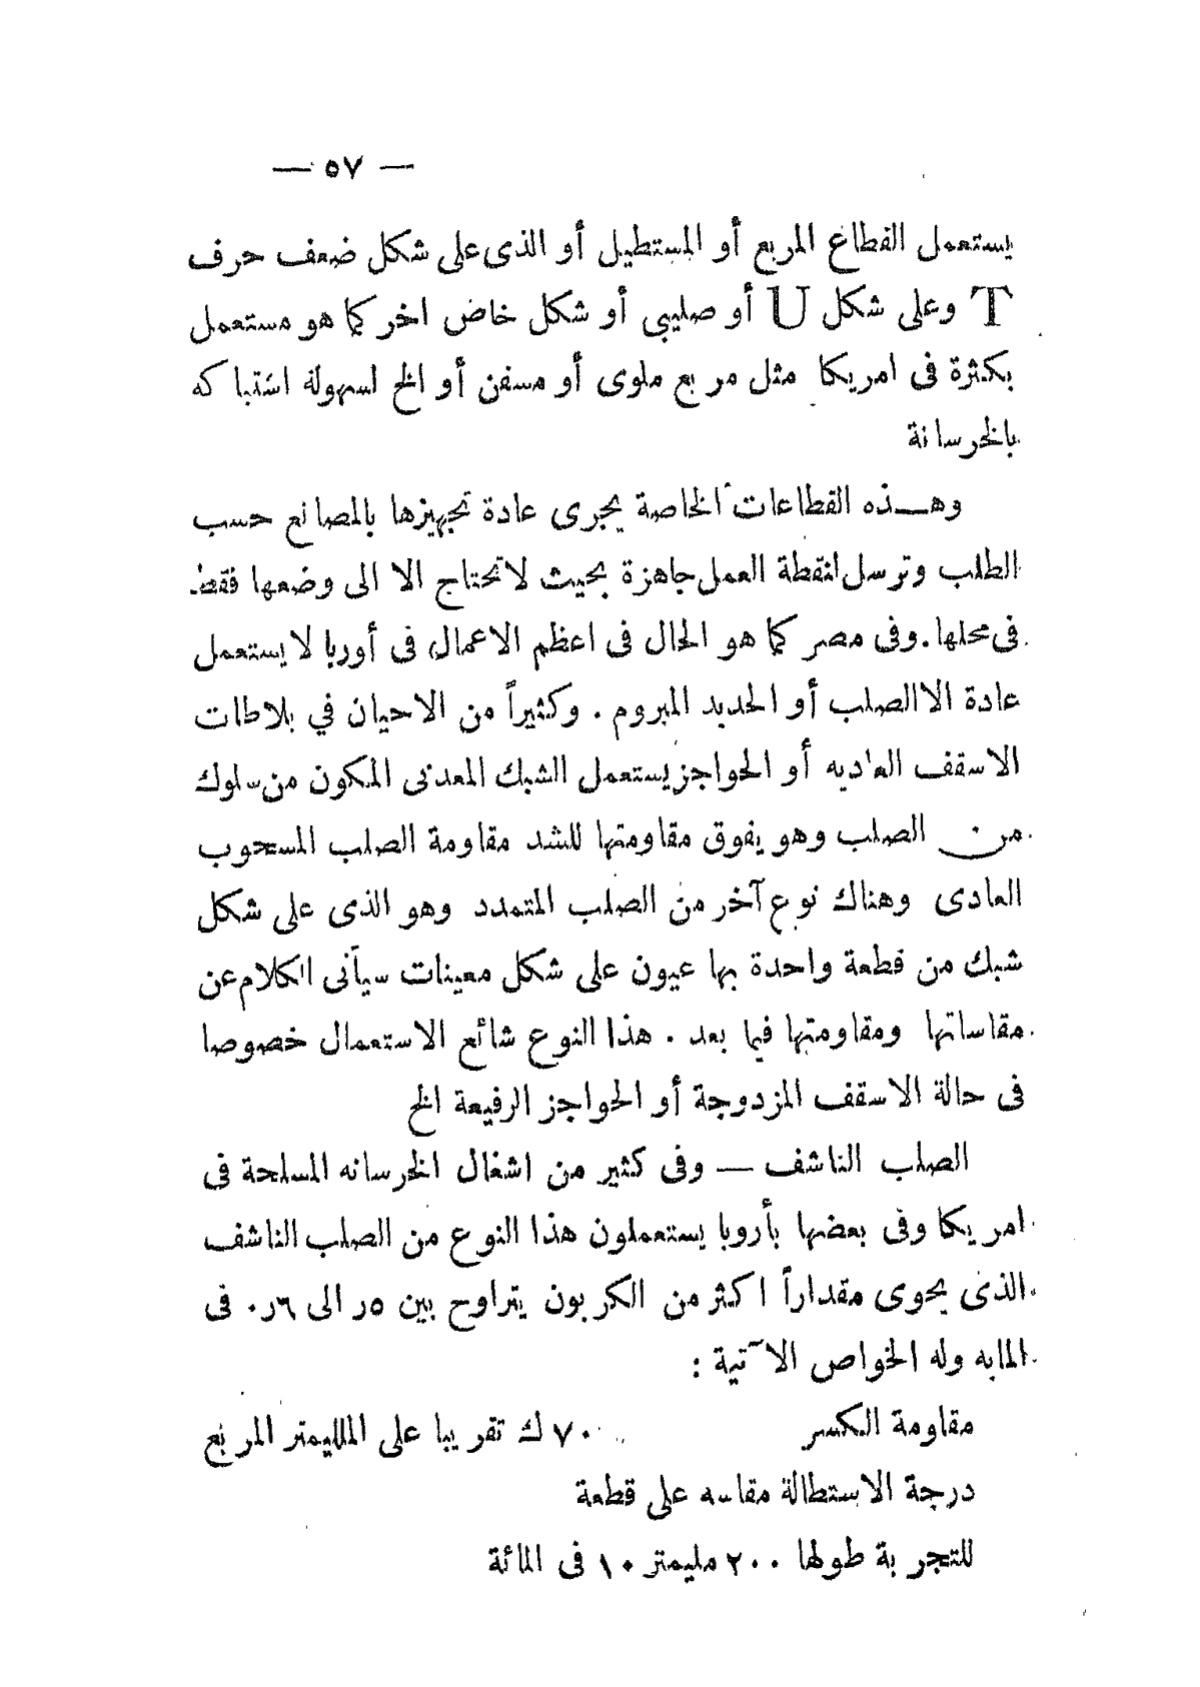 — ٥٧ —
يستعمل القطاع المربع أو المستطيل أو الذى على شكل ضعف حرف
T وعلى شكل U أو صليبي أو شكل خاص اخر كما هو مستعمل
بكثرة فى امريكا مثل مربع ملوى أو مسفن أو الخ لسهولة اشتباكه
بالخرسانة
وهـذه القطاعات الخاصة يجرى عادة تجهيزها بالمصانع حسب
الطلب وترسل لنقطة العمل جاهزة بحيث لا تحتاج الا الى وضعها فقط
فى محلها . وفى مصر كما هو الحال فى اعظم الاعمال فى أوربا لا يستعمل
عادة الا الصلب أو الحديد المبروم . وكثيراً من الاحيان في بلاطات
الاسقف العاديه أو الحواجز يستعمل الشبك المعدنى المكون من سلوك
من الصلب وهو يفوق مقاومتها للشد مقاومة الصلب المسحوب
العادى وهناك نوع آخر من الصلب المتمدد وهو الذى على شكل
شبك من قطعة واحدة بها عيون على شكل معينات سيأتى الكلام عن
مقاساتها ومقاومتها فيما بعد . هذا النوع شائع الاستعمال خصوصا
فى حالة الاسقف المزدوجة أو الحواجز الرفيعة الخ
الصلب الناشف — وفى كثير من اشغال الخرسانه المسلحة فى
امريكا وفى بعضها بأروبا يستعملون هذا النوع من الصلب الناشف
الذى يحوى مقداراً اكثر من الكربون يتراوح بين ٥ر الى ٦ر٠ فى
المايه وله الخواص الآتية :
مقاومة الكسر ٧٠ ك تقريبا على الملليمتر المربع
درجة الاستطالة مقاسه على قطعة
للتجربة طولها ٢٠٠ مليمتر ١٠ فى المائة